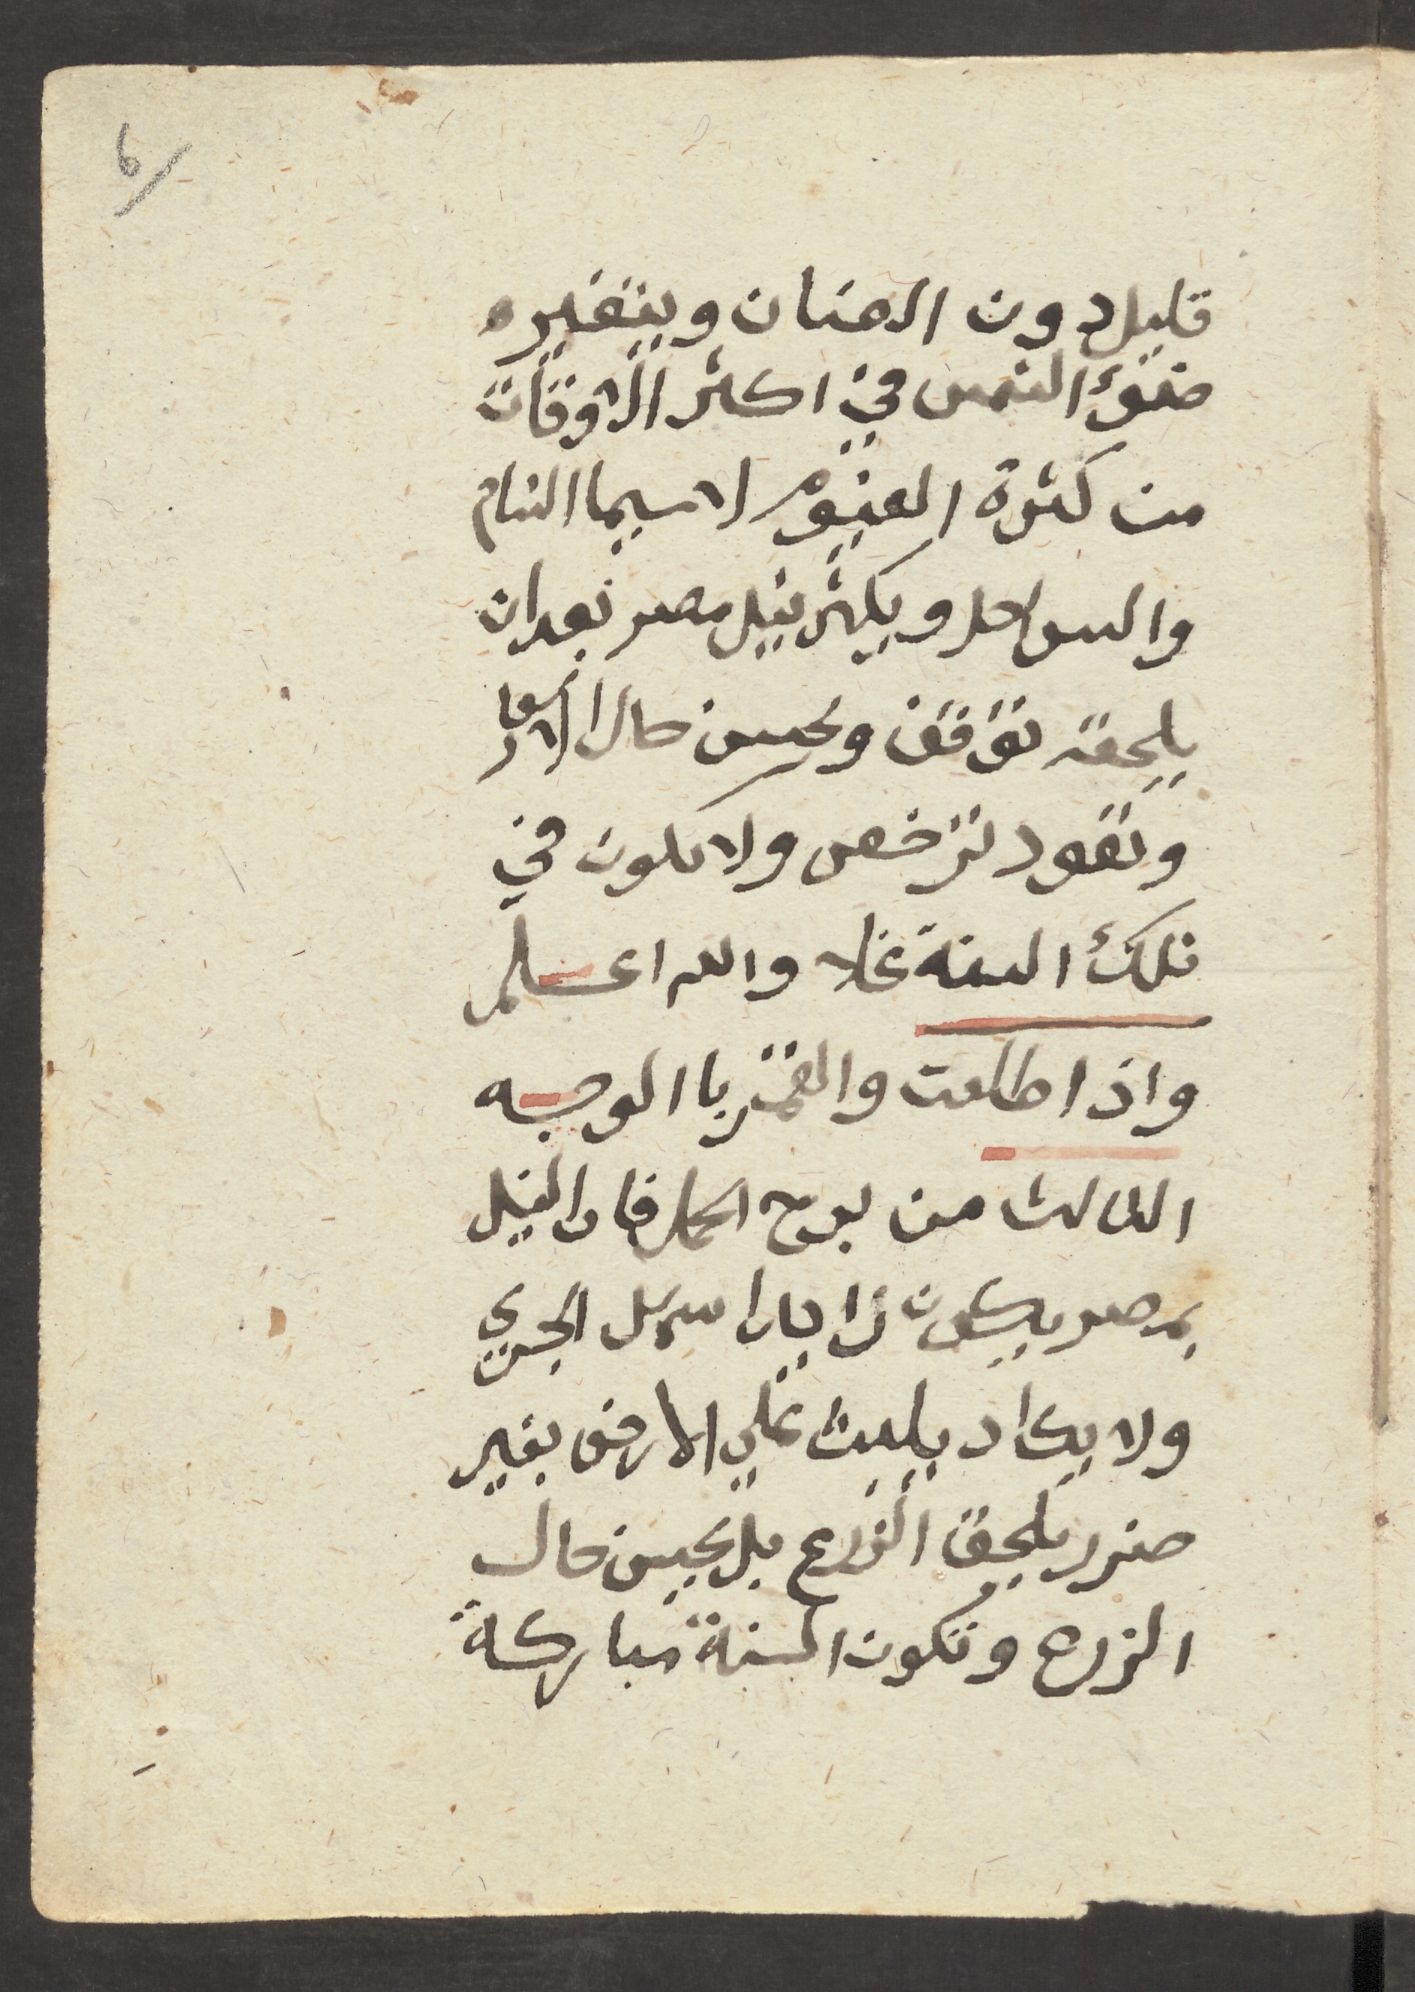 ٦
قليل دون الضان ويتغير
ضوء الشمس في اكثر الاوقات
من كثرة الغيوم لا سيما الشام
والسواحل ويكثر نيل مصر بعد ان
يلحقه توقف ويحسن حال الاسعار
وتعود ترخص ولا يكون في
تلك السنة غلا والله اعلم
واذا طلعت والقمر با الوجه
الثالث من برج الحمل فان النيل
بمصر يكون زايدا سريع الجري
ولا يكاد يلبث علي الارض بغير
ضرر يلحق الزرع بل يحسن حال
الزرع وتكون السنة مباركة